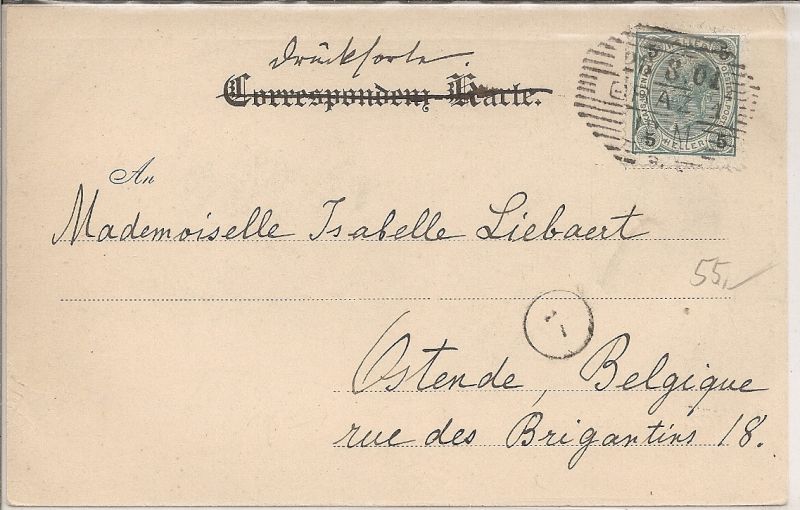 Drucksorte.
Correspondenz-Karte.
5 5
8.01
5 HELLER 5
An
Mademoiselle Isabelle Liebaert
55,-
Ostende, Belgique
rue des Brigantins 18.